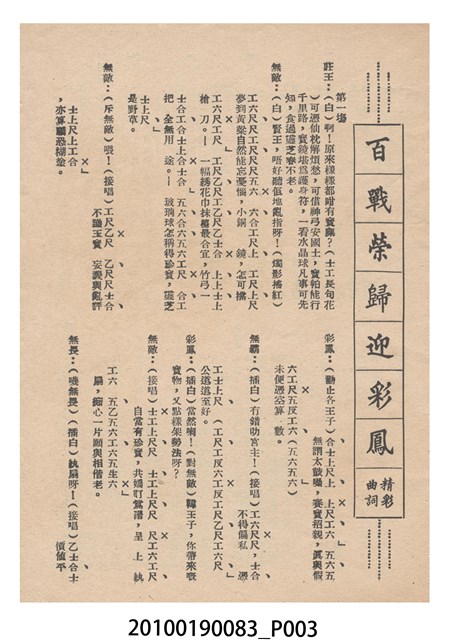 百戰榮歸迎彩鳳
精彩
曲詞
第一塲
莊王：（白）啊！原來樣樣都咁有寶嘅？（士工長句花
）可憑仙枕解煩愁，可借神弓安國土，寶鉑能行
千里路，寶鏡堪爲護身符，一看水晶球凡事可先
知，食過靈芝春不老。
無敵：（白）賢王，唔好聽佢地亂指呀！（燭影搖紅）
工六工尺尺尺五六　六合工尺上　工尺上尺尺
夢到黃粱自然能忘憂惱，小銅　鏡，怎可擋
工六尺工尺　工尺乙尺工尺士合　上上士上
槍　刀。｜　一幅綉花巾抹檯最合宜，竹弓一
士合工合士上合士合　五六合六五六工尺　合工
把，全無用　途。｜　玻璃球怎稱得珍寶，靈芝
士上尺
是野草。
無敵：（斥無敵）喂！（接唱）工尺乙尺　乙尺士合
不識至寶　妄談與亂評
士上尺上工合
，亦算糊恐糊塗。
彩鳳：（勸止各王子）合士上尺上　上尺工六　五六五
無謂太鼓噪，賽寶招親，眞與假
六工尺五反工六（五六五六）
未便憑空算　數。
無霸：（插白）有錯叻宮主！（接唱）工六尺尺，士合
不得偏私　憑
工士上尺　（工尺工反六工反工尺乙尺工尺
公道選至好。
彩鳳：（插白）當然喇！（對無敵）韓王子，你帶來嘅
寶物，又點樣架勢法呀？
無敵：（接唱）士工上尺尺　士工上尺尺　尺工六工尺
自當有珍寶，共嬌叮當譜，呈　上　紈
工六　五乙五六工六五生六
扇，痴心一片願與相偕老。
無畏：（嘰無畏）（插白）紈扇呀！（接唱）乙士合士
價値平
20100190083_P003